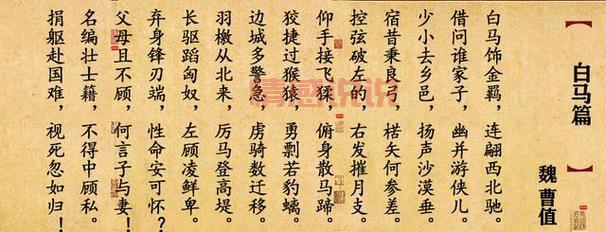 【白马篇】
魏 曹值
白马饰金羁，连翩西北驰。
借问谁家子，幽并游侠儿。
少小去乡邑，扬声沙漠垂。
宿昔秉良弓，楛矢何参差。
控弦破左的，右发摧月支。
仰手接飞猱，俯身散马蹄。
狡捷过猴猿，勇剽若豹螭。
边城多警急，虏骑数迁移。
羽檄从北来，厉马登高堤。
长驱蹈匈奴，左顾凌鲜卑。
弃身锋刃端，性命安可怀？
父母且不顾，何言子与妻！
名编壮士籍，不得中顾私。
捐躯赴国难，视死忽如归！
情感说说